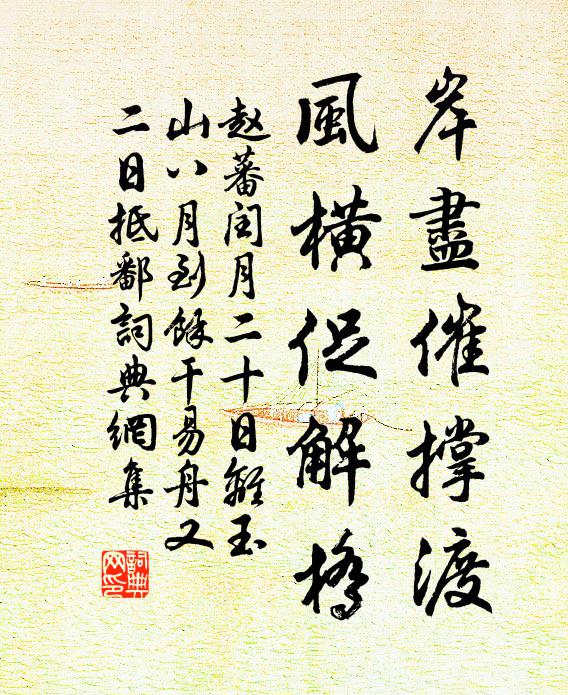 岸盡催撑渡
風橫促解橋
赵蕃閏月二十日離玉
山八月到餘干易舟又
二日抵鄱詞典網集
詞典网印